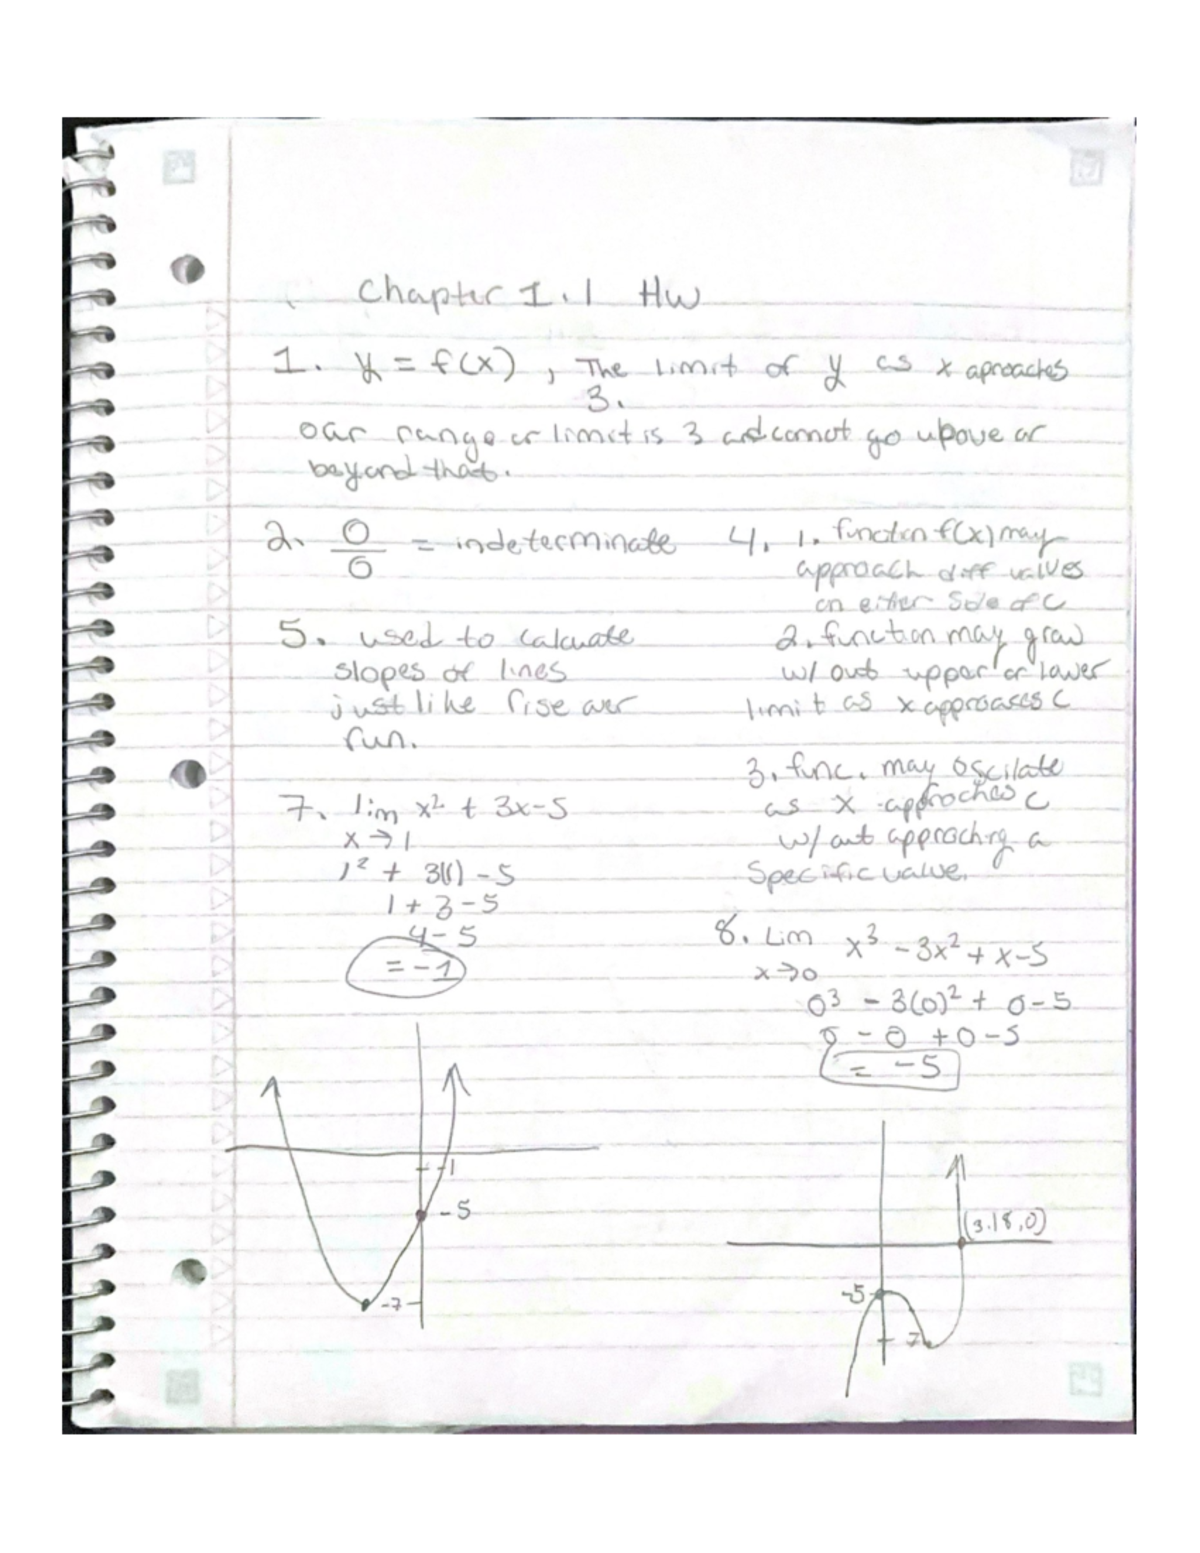 Chapter 1.1 HW
1. y = f(x) , The limit of y as x aproaches
3.
our range or limit is 3 and cannot go upove or
beyond that.
2. 0/0 = indeterminate
5. used to calcuate
slopes of lines
just like rise over
run.
7. lim x² + 3x-5
x → 1
1² + 3(1) - 5
1 + 3 - 5
4 - 5
= -1
-1
-5
-7
4. 1. function f(x) may
approach diff values
on either side of C
2. function may grow
w/ out upper or lower
limit as x approases C
3. func. may oscilate
as x approches C
w/ out approching a
specific value.
8. Lim x³ - 3x² + x - 5
x → 0
0³ - 3(0)² + 0 - 5
0 - 0 + 0 - 5
= -5
(3.18, 0)
-5
7